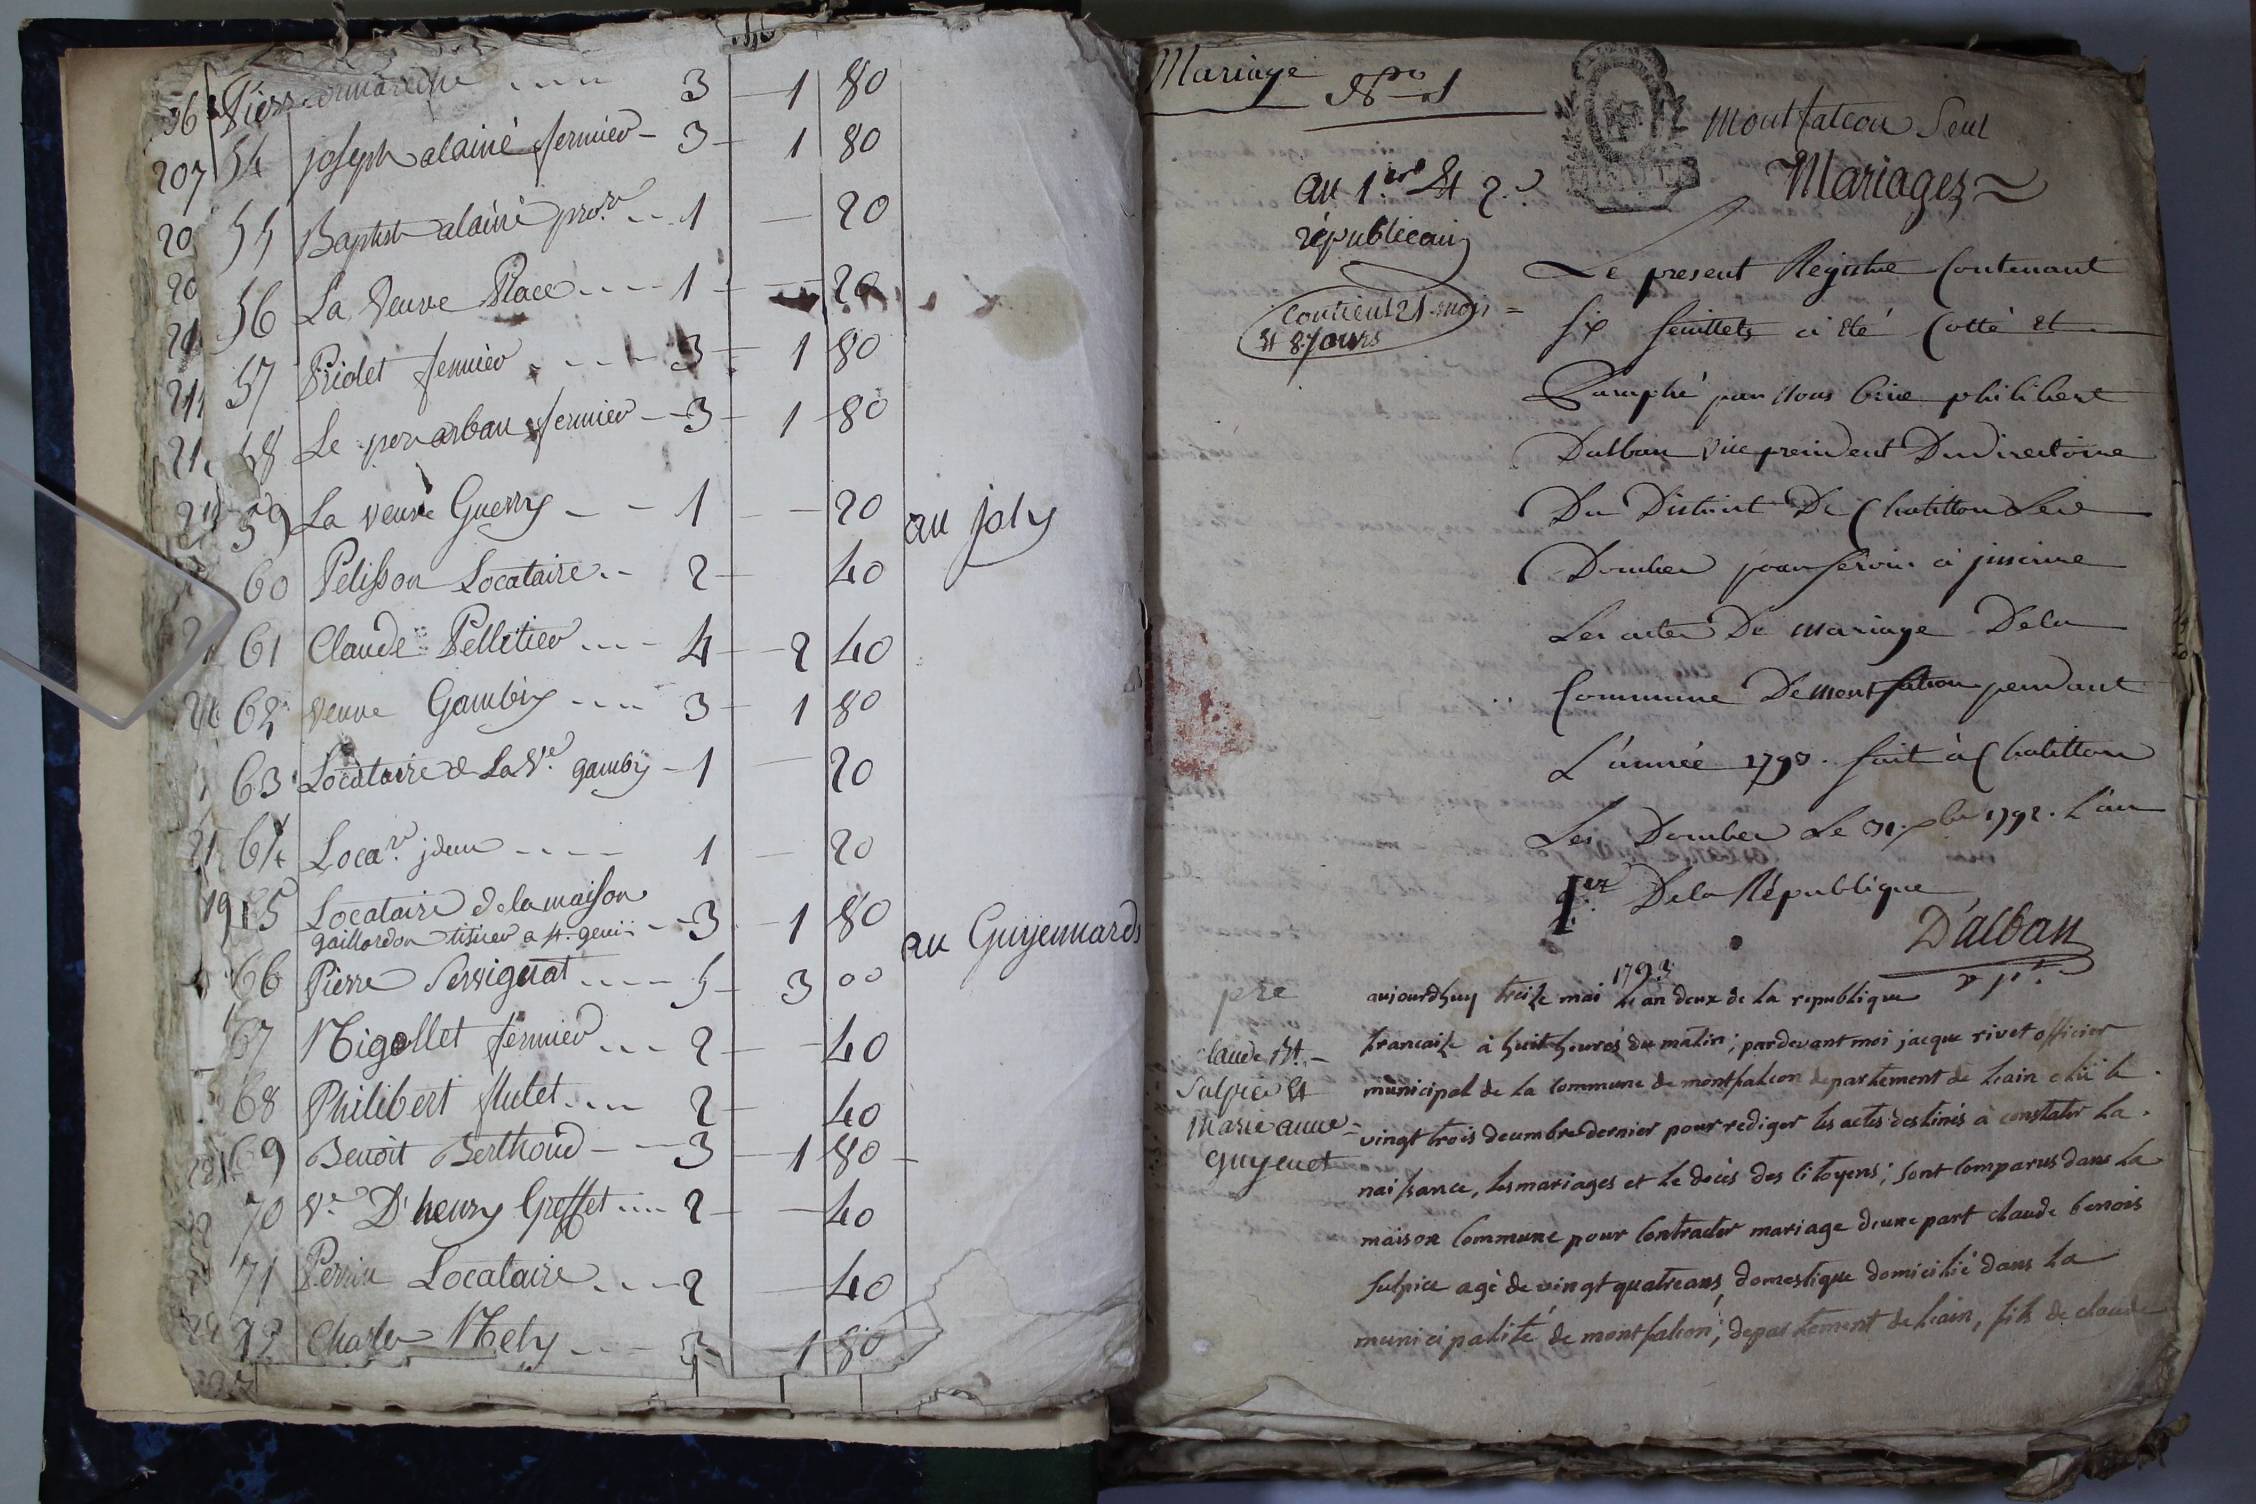 207 54 joseph alainé fermier - 3 - 1 80
55 Baptiste alainé - - 1 - 20
56 La Veuve Place - - - - 1 - - 20
57 Violet fermier - - - - 3 - 1 80
58 Le fermier - 3 - 1 80
59 La veuve Guerry - - 1 - 20
au joly
60 Pelisson Locataire - - 2 - 40
61 Claude Pelletier - - - 4 - 2 40
62 veuve Gamby - - - - 3 - 1 80
63 Locataire de La Ve. gamby - 1 - 20
64 Locare. jdem - - - - 1 - 20
65 Locataire de la maison
gaillardon a st. - - 3 - 1 80
au Guyennards
66 Pierre Servignat - - - - 5 - 3 00
67 Nigollet fermier - - - 2 - 40
68 Philibert flutet - - - - 2 - 40
69 Benoit Berthoud - - 3 - 1 80 -
70 Ve. D'henry Greffet - - - - 2 - 40
71 Perrin Locataire - - - 2 - 40
72 Charles Mely - - - 3 - 1 80
Mariage No 1
Montfalcon Seul
Mariages
au 1er Et 2e
républicain
contient 21 mois
Et 8 jours
Le present Registre Contenant
six feuillets a été Cotté et
Paraphé par Nous brice philibert
Dalban Vice president Du Directoire
Du District De Chatillon Les
Dombes pour servir a jnscrire
Les actes De mariage De la
Commune De montfalcon pendant
L'année 1793. fait à Chatillon
Les Dombes Le 31. xbre 1792. L'an
1er De la République
D'alban
v pt.
pre
Claude Bt.
Sulpice Et
Marie anne
Guyenet
aujourdhuy treize mai 1793 l'an deux de la republique
francaise à huit heures du matin; pardevant moi jacque rivet officier
municipal de la commune de montfalcon departement de lain elu le
vingt trois decembre dernier pour rediger les actes destinés a constater la
naissance, les mariages et le décès des citoyens; sont comparus dans la
maison commune pour contracter mariage d'une part claude benois
sulpice agé de vingt quatre ans, domestique domicilié dans la
municipalité de montfalcon, departement de lain, fils de claude